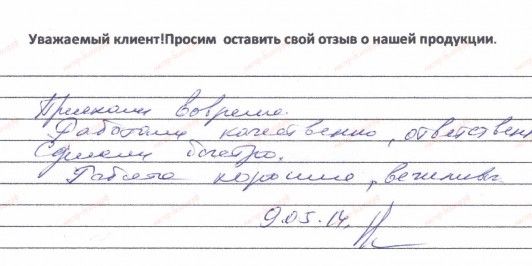 Уважаемый клиент!Просим оставить свой отзыв о нашей продукции.
Приехали вовремя.
Работали качественно, ответствен
Сделали быстро.
Работа хорошая, вежливы
9.05.14.